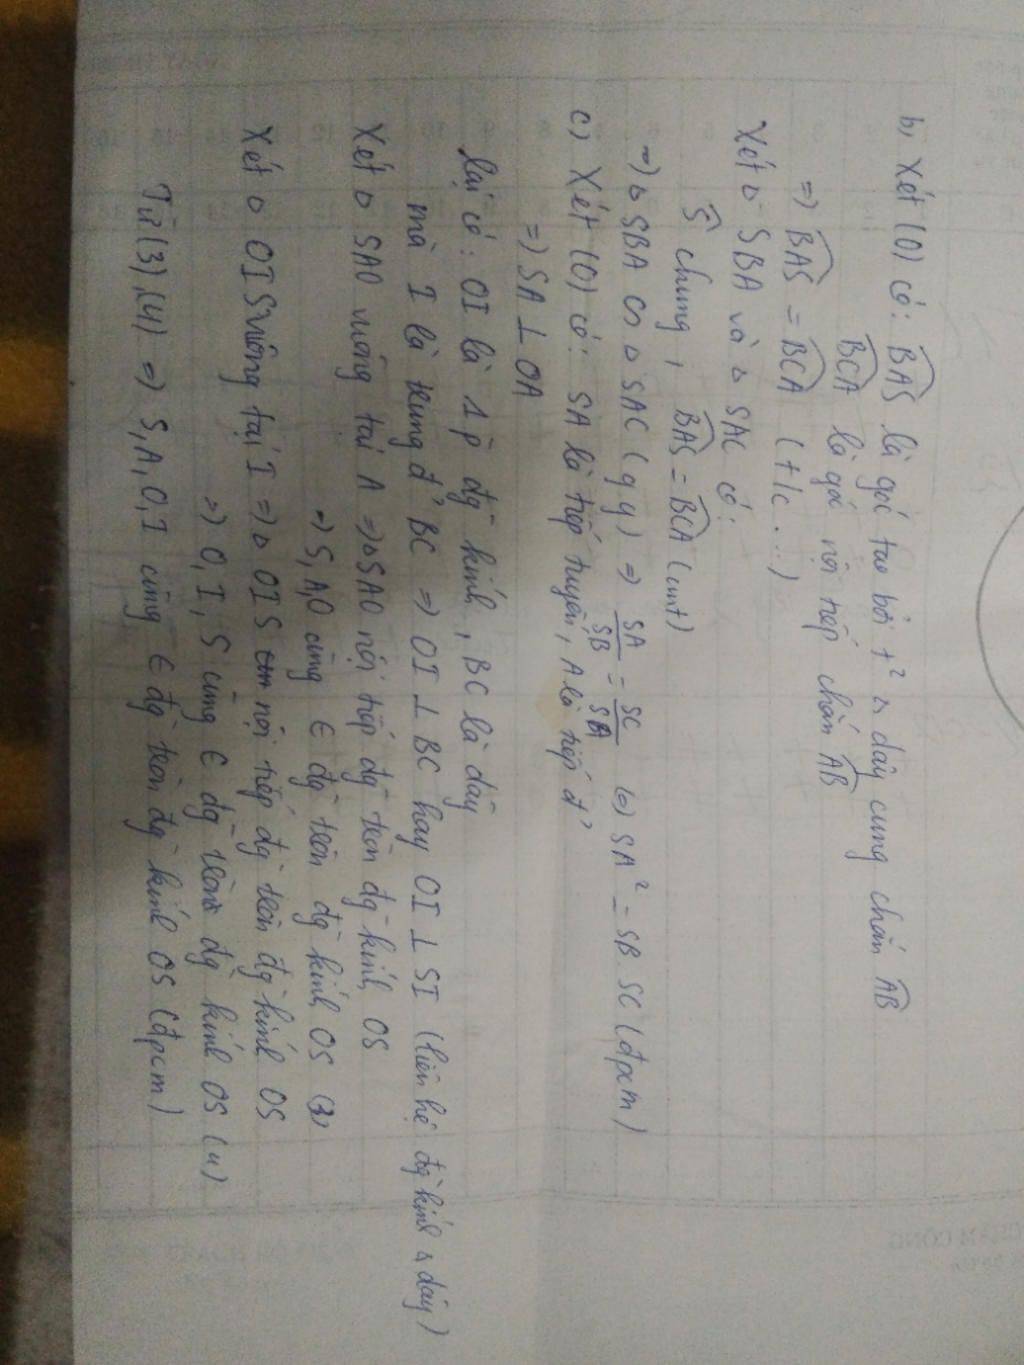 b, Xét (O) có: BAS là góc tạo bởi t² & dây cung chắn AB
BCA là góc nội tiếp chắn AB
=> BAS = BCA (t/c ...)
Xét Δ SBA và Δ SAC có:
S chung, BAS = BCA (cmt)
=> Δ SBA ∽ Δ SAC (gg) => SA/SB = SC/SA (=) SA² = SB. SC (đpcm)
c) Xét (O) có: SA là tiếp tuyến, A là tiếp đ'
=> SA ⊥ OA
Lại có: OI là 1 p đg kính, BC là dây
mà I là trung đ' BC => OI ⊥ BC hay OI ⊥ SI (liên hệ đg kính & dây)
Xét Δ SAO vuông tại A => Δ SAO nội tiếp đg tròn đg kính OS
=> S, A, O cùng ∈ đg tròn đg kính OS (3)
Xét Δ OIS vuông tại I => Δ OIS nội tiếp đg tròn đg kính OS
=> O, I, S cùng ∈ đg tròn đg kính OS (4)
Từ (3), (4) => S, A, O, I cùng ∈ đg tròn đg kính OS (đpcm)